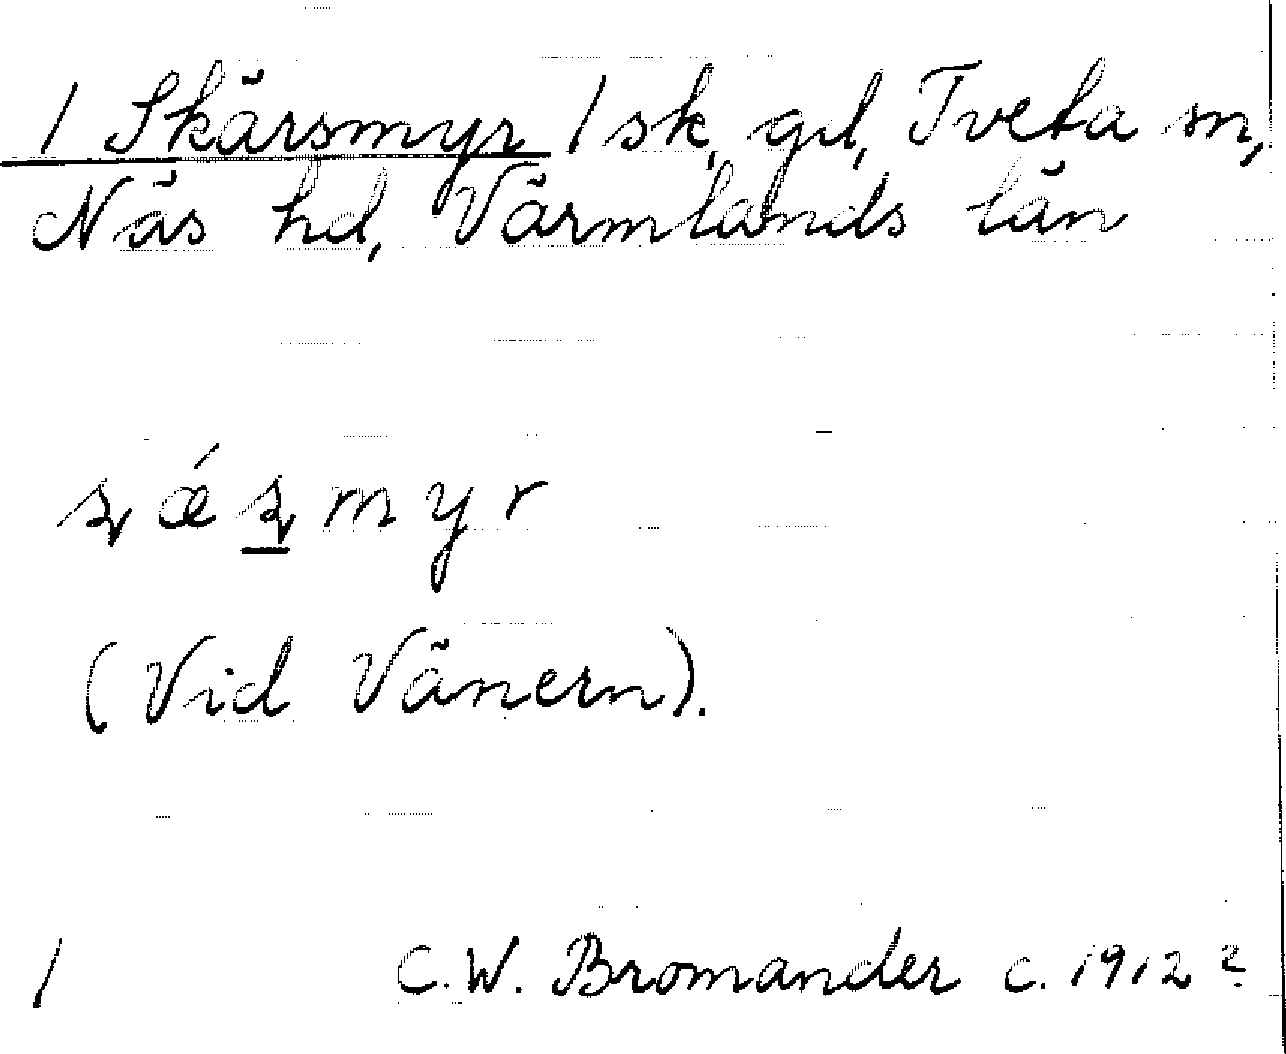 / Skärsmyr / sk, gd, Tveta sn,
Näs hd, Värmlands län
ʂǽʂmyr
(Vid Vänern).
/ C.W. Bromander c. 1912?